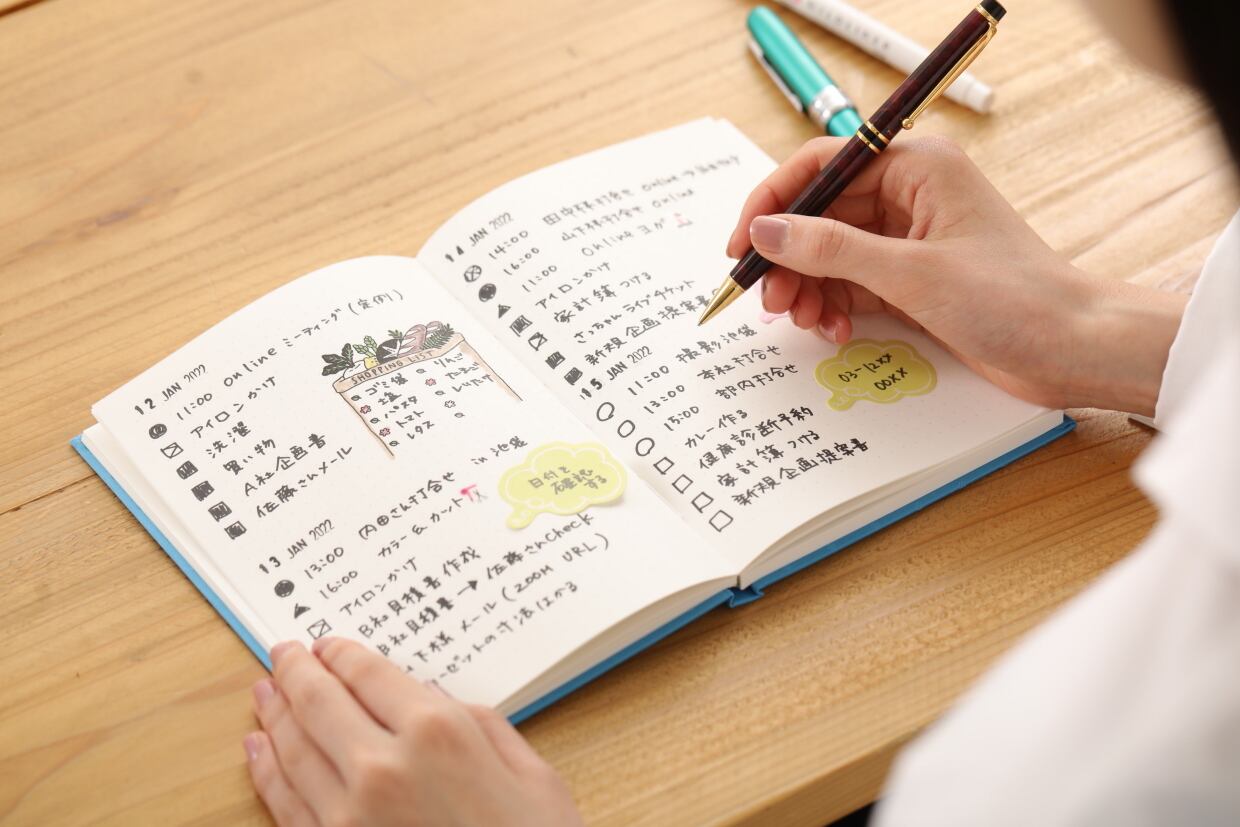 12 JAN 2022
11:00 online ミーティング(定例)
アイロンかけ
洗濯
買い物
A社企画書
佐藤さんメール
SHOPPING LIST
ゴミ袋
塩
パスタ
トマト
レタス
りんご
たまご
13 JAN 2022
13:00 内田さん打合せ in 池袋
16:00 カラー & カット
アイロンかけ
B社見積書作成
B社見積書 → 佐藤さんCheck
下様 メール (ZOOM URL)
ーゼットの寸法はかる
日付を
確認
する
14 JAN 2022
14:00 田中様打合せ online
16:00 山下様打合せ online
11:00 Online ヨガ
アイロンかけ
家計簿つける
さっちゃん ライブチケット
新規企画提案書
15 JAN 2022
11:00 撮影 池袋
13:00 本社打合せ
15:00 部内打合せ
カレー作る
健康診断予約
家計簿つける
新規企画提案書
03-12XX
00XX